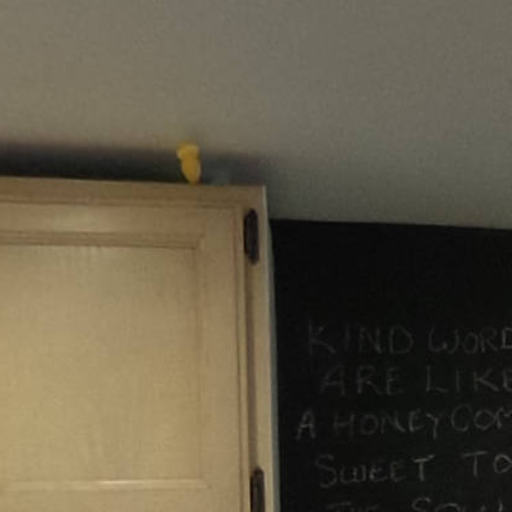 KIND WORD
ARE LIKE
A HONEYCOM
SWEET TO
THE SOUL